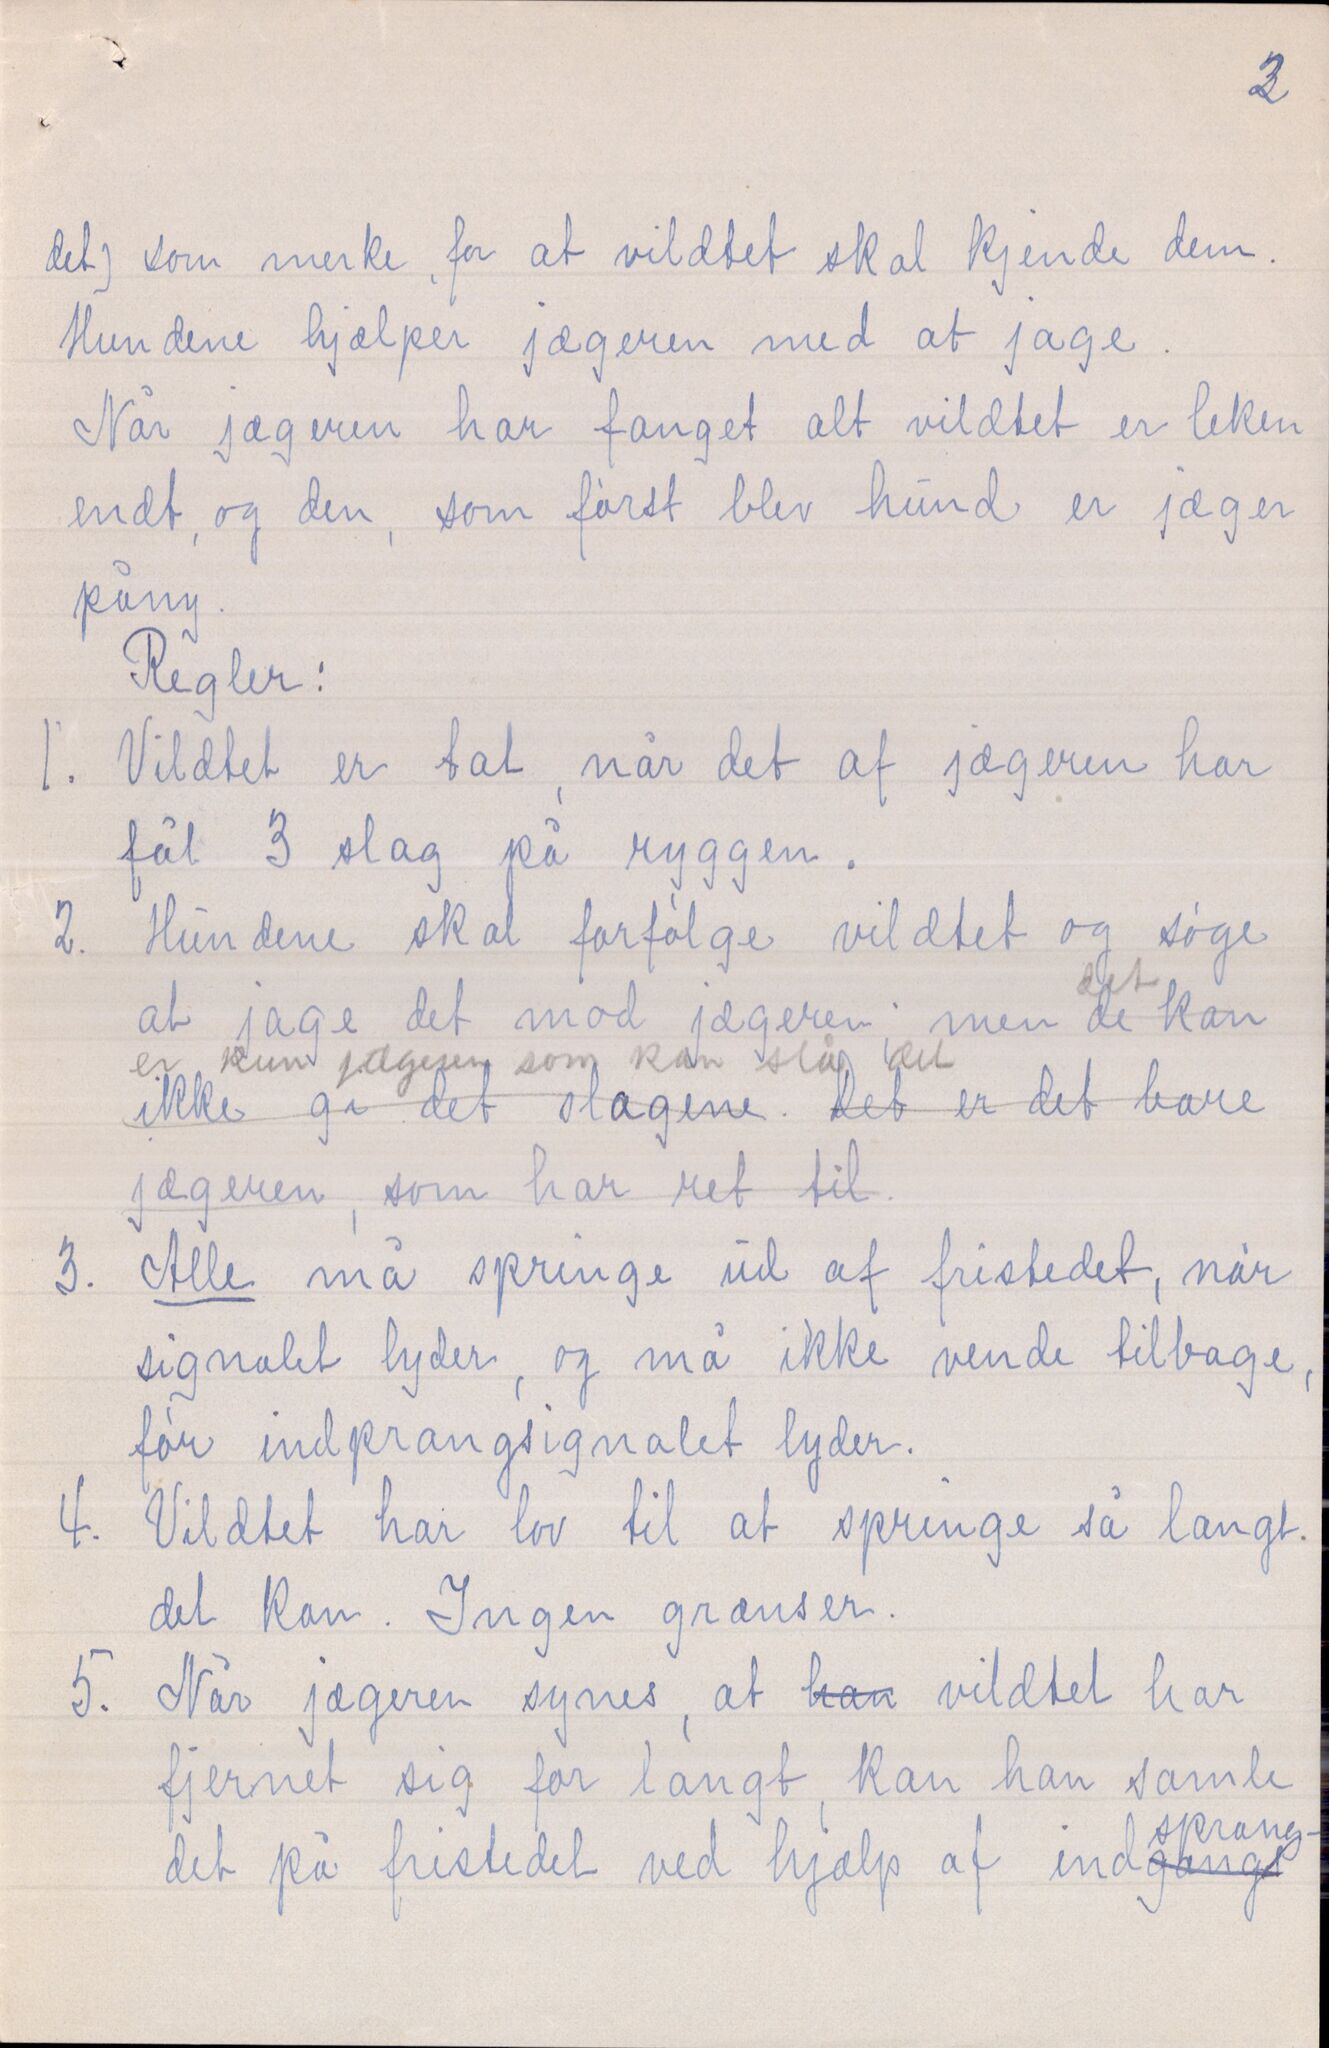 2
det) som merke, for at vildtet skal kjende dem.
Hundene hjælper jægeren med at jage.
Når jægeren har fanget alt vildtet er leken
endt, og den, som først blev hund er jæger
påny.
Regler:
1. Vildtet er tat, når det af jægeren har
fåt 3 slag på ryggen.
2. Hundene skal forfølge vildtet og søge
det
at jage det mod jægeren; men de kan
er kun jægeren som kan slå det
ikke gi det slagene. Det er det bare
jægeren, som har ret til.
3. Alle må springe ud af fristedet, når
signalet lyder, og må ikke vende tilbage,
før indprangsignalet lyder.
4. Vildtet har lov til at springe så langt.
det kan. Ingen grænser.
5. Når jægeren synes, at han vildtet har
fjernet sig for langt, kan han samle
sprang-
det på fristedet ved hjælp af indgangs